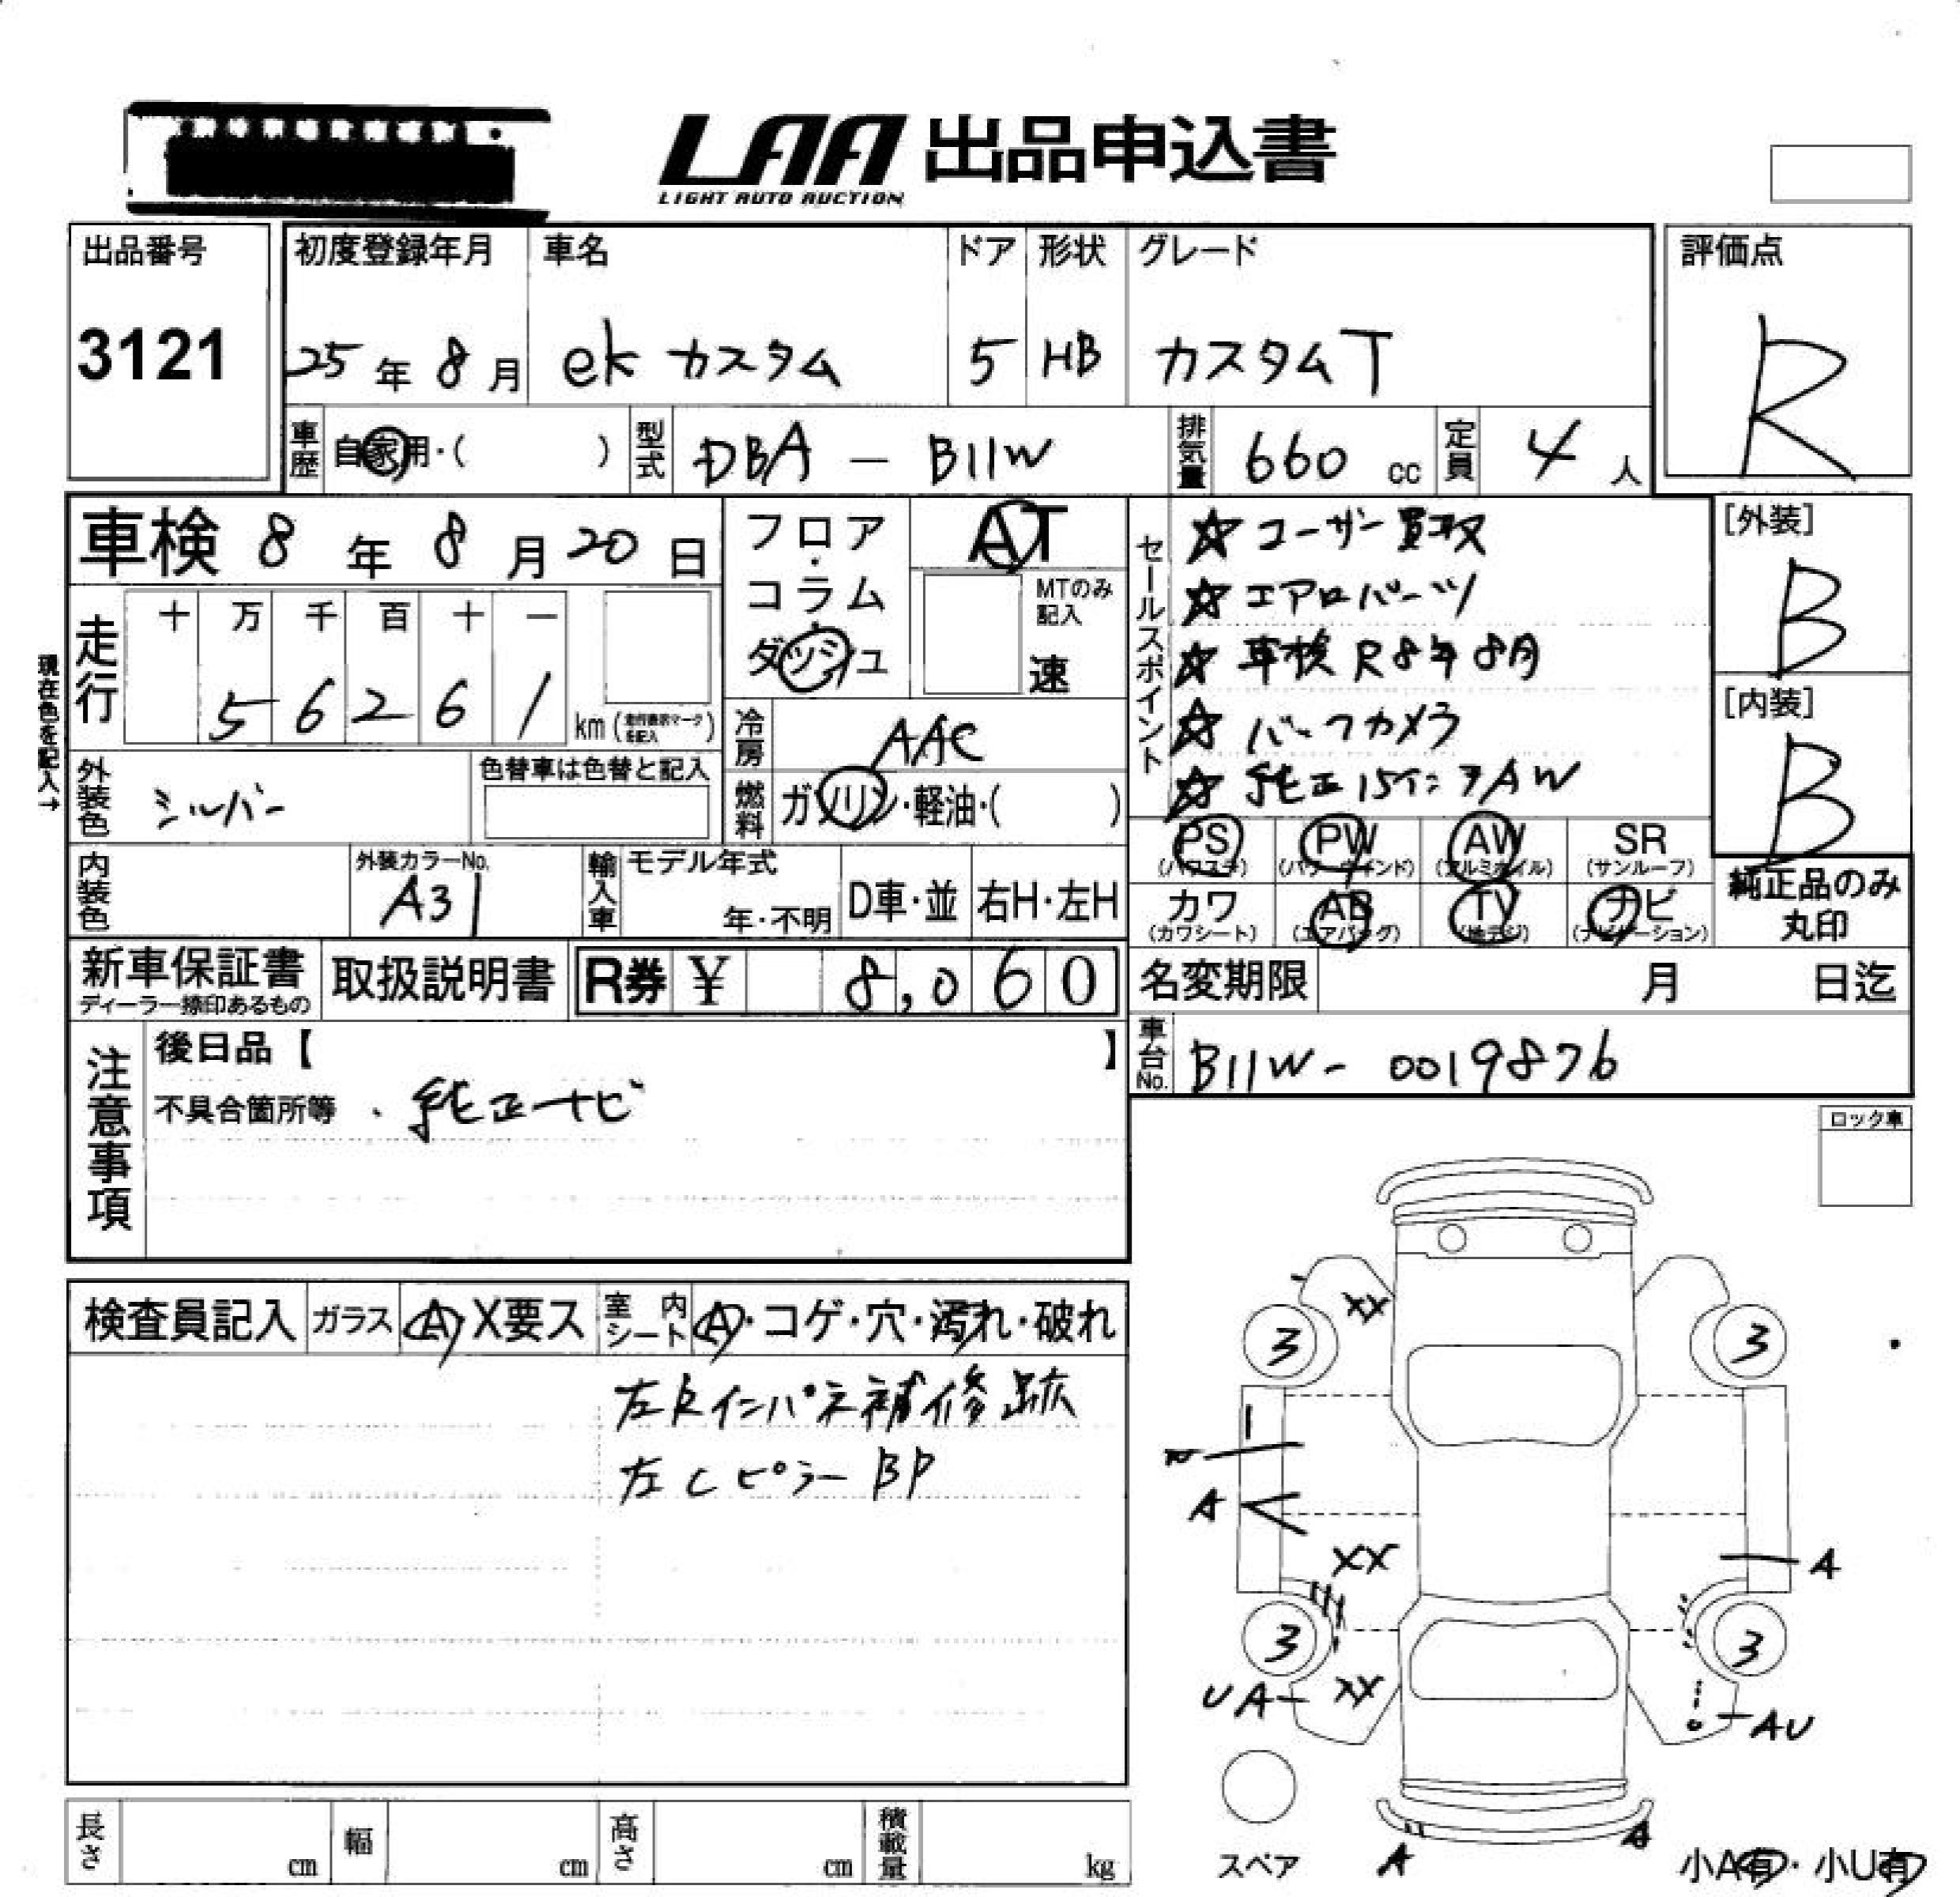 LAA 出品申込書
LIGHT AUTO AUCTION
出品番号
3121
初度登録年月 車名 ドア 形状 グレード
25年8月 ek カスタム 5 HB カスタムT
車歴 自家用・( ) 型式 DBA - B11W 排気量 660 cc 定員 4人
評価点
R
車検 8年8月20日
フロア・コラム・ダッシュ
AT
MTのみ記入
速
セールスポイント
☆ユーザー買取
☆エアロパーツ
☆車検R8年8月
☆バックカメラ
☆純正15インチAW
[外装]
B
[内装]
B
現在色を記入→
走行 十 万 千 百 十 一
5 6 2 6 1 km (走行表示マークを記入)
冷房 AAC
外装色 シルバー 色替車は色替と記入
燃料 ガソリン・軽油・( )
PS (パワステ) PW (パワーウィンド) AW (アルミホイル) SR (サンルーフ)
カワ (カワシート) AB (エアバッグ) TV (地デジ) ナビ (ナビゲーション)
純正品のみ丸印
内装色 外装カラーNo. A31 輸入車 モデル年式 年・不明 D車・並 右H・左H
新車保証書 ディーラー捺印あるもの 取扱説明書 R券 ¥ 8,060
名変期限 月 日迄
車台No. B11W- 0019876
注意事項
後日品【 】
不具合箇所等 、純正ナビ
ロック車
検査員記入 ガラス A X要ス 室内シート A・コゲ・穴・汚れ・破れ
左Rインパネ補修跡
左CピラーBP
XX
3 3
A
XX
A
3 3
UA XX AU
A A
スペア
小A有・小U有
長さ cm 幅 cm 高さ cm 積載量 kg